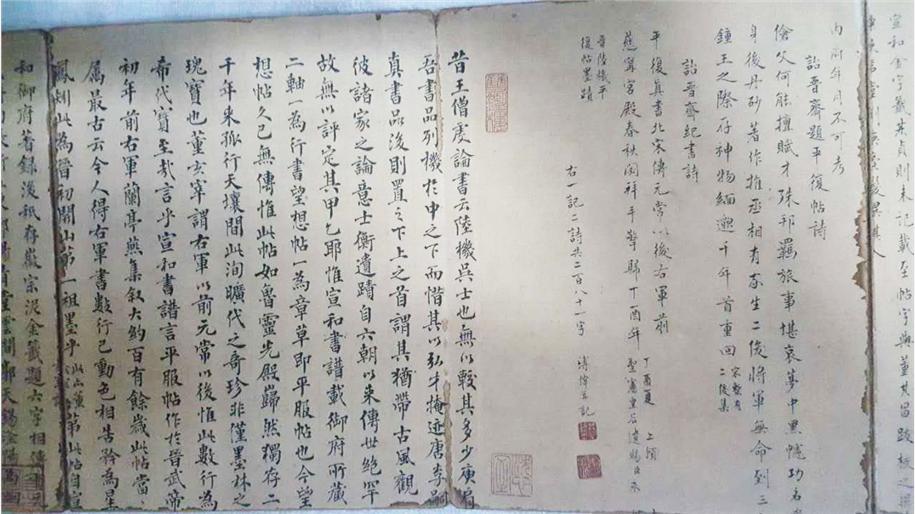 內府年月不可考
詒晉齋題平復帖詩
傖父何能擅賦才殊邦羈旅事堪哀夢中黑幰功名
身後丹砂著作推丞相有家生二俊將軍無命到三
宋槧有二俊集
鍾王之際存神物緬邈千年首重回
詒晉齋紀書詩
平復真書北宋傳元常以後右軍前
丁酉夏上頒
聖憲皇后遺賜臣永
慈寧宮殿春秋閏祥手擎歸丁酉年
晉陸機平
復帖墨蹟
右一記二詩共二百八十一字 溥偉並記
昔王僧虔論書云陸機吳士也無以較其多少庾肩
吾書品列機於中之下而惜其以弘才掩迹唐李嗣
真書品後則置之下上之首謂其猶滯古風觀
彼諸家之論意士衡遺蹟自六朝以來傳世絕罕
故無以評定其甲乙耶惟宣和書譜載御府所藏
二軸一為行書望想帖一為章草即平服帖也今望
想帖久已無傳惟此帖如魯靈光殿巋然獨存二
千年來孤行天壤間此洵曠代之奇珍非僅墨林之
瑰寶也董玄宰謂右軍以前元常以後惟此數行為
希代寶至哉言乎宣和書譜言平服帖作於晉武帝
初年前右軍蘭亭燕集叙大約百有餘歲此帖當
屬最古云今人得右軍書數行已動色相告矜為星
鳳矧此為晉初開山第一祖墨乎第此帖自宣
和御府著錄後祇存徽宗泥金籤題六字相傳